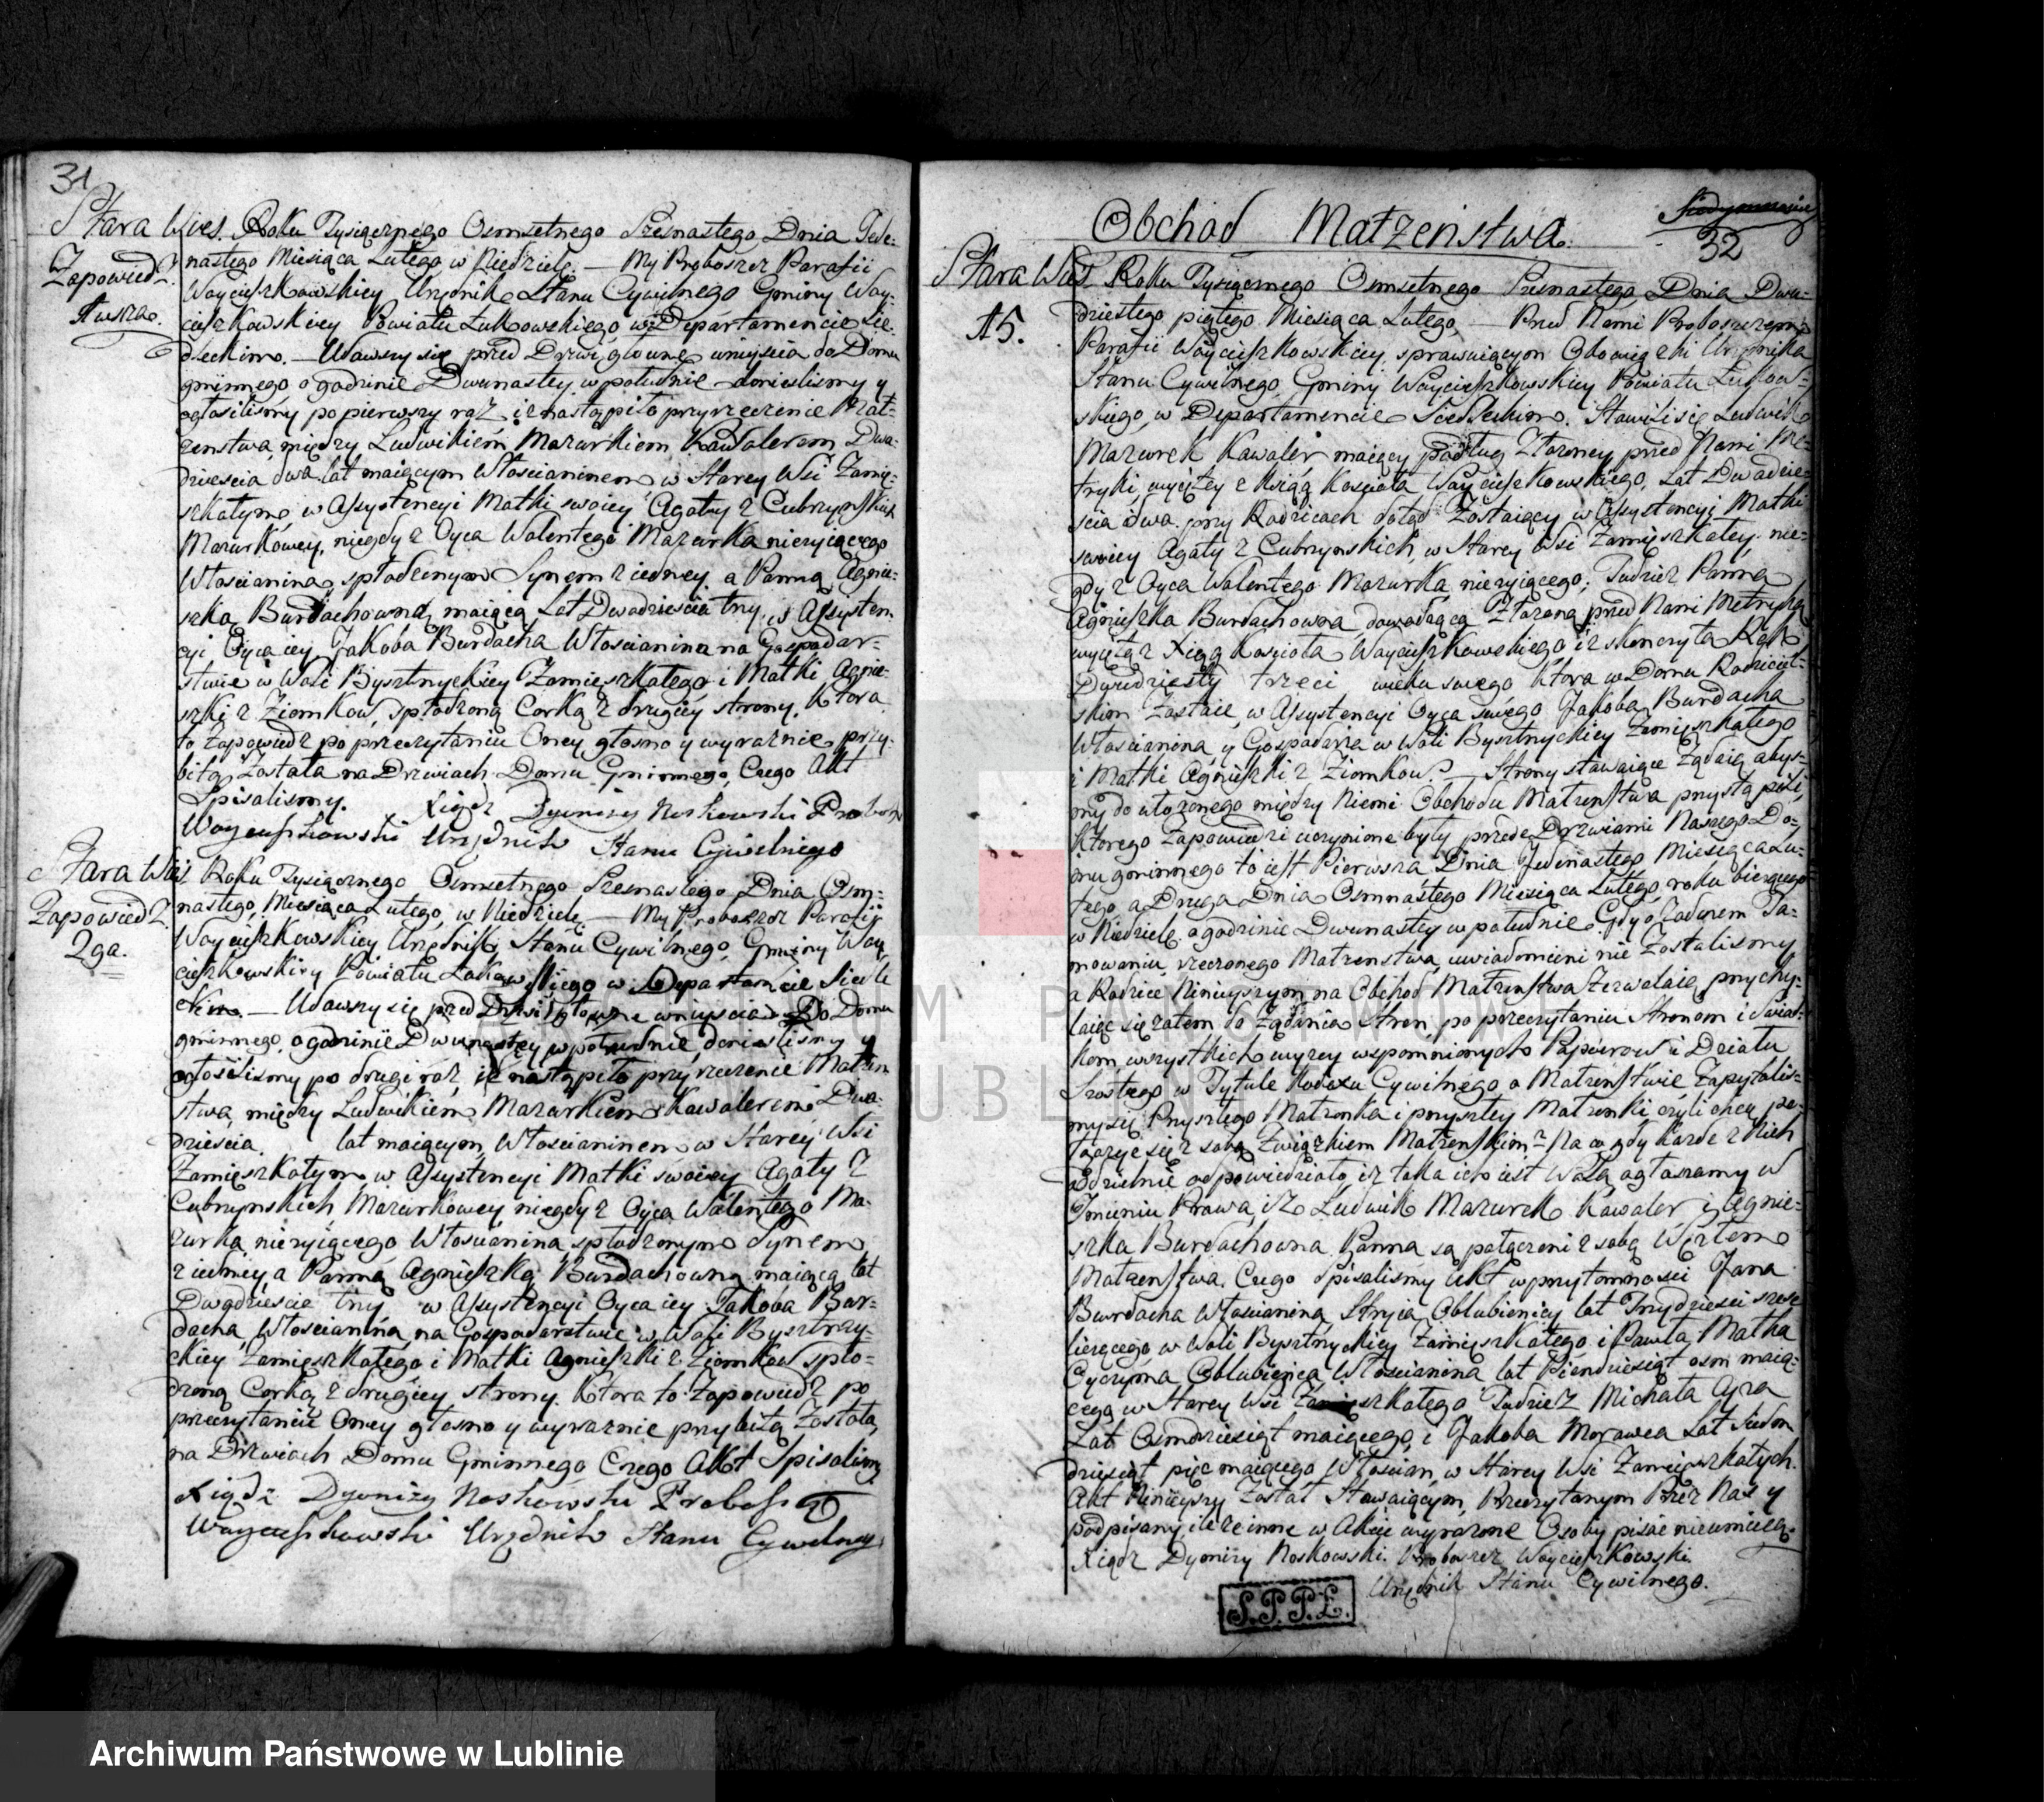 31
Stara Wieś. Roku Tysiącznego Osmsetnego Szesnastego Dnia Jede-
Zapowiedź nastego Miesiąca Lutego w Niedzielę. — My Proboszcz Parafii
Woycieszkowskiey Urzędnik Stanu Cywilnego Gminy Woy-
1wsza. cieszkowskiey Powiatu Łukowskiego w Departamencie Sie-
dleckim. — Udawszy się przed Drzwi główne wniyścia do Domu
gminnego o godzinie Dwunastey w południe donieslismy y
ogłosilismy po pierwszy raz iż nastąpiło przyrzeczenie Mał-
zenstwa między Ludwikiem Mazurkiem Kawalerem Dwa-
dziescia dwa lat maiącym Włościaninem w Starey Wsi Zamię-
szkałym w Assystencyi Matki swoiey Agaty z Cubrzynskich
Mazurkowey, niegdy z Oyca Walentego Mazurka nieżyiącego
Włościanina spłodzonym Synem z iedney a Panną Agnie-
szką Burdachowną maiącą Lat Dwadziescia trzy, w Assysten-
cyi Oyca iey Jakoba Burdacha Włościanina na Gospodar-
stwie w Woli Bysztryckiey Zamięszkałego i Matki Agnie-
szki z Ziomkow, spłodzoną Corką z drugiey strony. Ktora
to Zapowiedz po przeczytaniu Oney głosno y wyraznie przy-
bitą Została na Drzwiach Domu Gminnego, Czego Akt
Spisalismy. Xiądz Dyonizy Noskowski Probosz
Woycieszkowski Urzędnik Stanu Cywilnego
Stara Wieś Roku Tysiącznego Osmsetnego Szesnastego Dnia Osm-
Zapowiedź nastego Miesiąca Lutego, w Niedzielę — My Proboszcz Parafii
2ga. Woycieszkowskiey Urzędnik Stanu Cywilnego Gminy Woy-
cieszkowskiey Powiatu Łukowskiego w Departamencie Siedle
ckim. — Udawszy się przed Drzwi główne wniyscia Do Domu
gminnego, o godzinie Dwunastey w południe donieslismy y
ogłosilismy po drugi raz, iż nastąpiło przyrzeczenie Małżen
stwa między Ludwikiem Mazurkiem Kawalerem Dwa-
dziescia lat maiącym, Włościaninem w Starey Wsi
Zamięszkałym w Assystencyi Matki swoiey Agaty z
Cubrzynskich Mazurkowey niegdy z Oyca Walentego Ma-
zurka nieżyiącego Włościanina spłodzonym Synem
z iedney a Panną Agnieszką Burdachowną maiącą lat
Dwadziescie trzy w Assystencyi Oyca iey Jakoba Bur-
dacha, Włościanina, na Gospodarstwie w Woli Bysztry-
ckiey Zamięszkałego i Matki Agnieszki z Ziomkow spło-
dzoną Corką z drugiey strony. Ktora to Zapowiedz po
przeczytaniu Oney głosno y wyraznie przybitą Została,
na Drzwiach Domu Gminnego Czego Akt Spisalismy
Xiądz Dyonizy Noskowski Probosz
Woycieszkowski Urzędnik Stanu Cywilny
Obchod Małżeństwa.
32
Stara Wieś. Roku Tysiącznego Osmsetnego Szesnastego Dnia Dwu-
15. dziestego piątego Miesiąca Lutego, — Przed Nami Proboszczem
Parafii Woycieszkowskiey, sprawuiącym Obowiązki Urzędnika
Stanu Cywilnego Gminy Woycieszkowskiey Powiatu Łukow-
skiego, w Departamencie Siedleckim. Stawili się Ludwik
Mazurek Kawaler maiący podług Złożoney przed Nami Me-
tryki wyiętey z Ksiąg Kościoła Woycieszkowskiego, Lat Dwadzie-
scia i dwa, przy Rodzicach dotąd Zostaiący w Assystencyi Matki
swoiey Agaty z Cubrzynskich w Starey Wsi Zamięszkałey, nie-
gdy z Oyca Walentego Mazurka nieżyiącego; Tudzież Panna
Agnieszka Burdachowna dowodzącą Złożoną przed Nami Metryką
wyiętą z Xiąg Kościoła Woycieszkowskiego iż skonczyła Rok
Dwudziesty trzeci wieku swego, Ktora w Domu Rodziciel-
skim Zostaie, w Assystencyi Oyca swego Jakoba Burdacha
Włościanina y Gospodarza w Woli Bysztryckiey Zamięszkałego
i Matki Agnieszki z Ziomkow. — Strony stawaiące Żądaią abys-
my do ułożonego między Niemi Obchodu Małżenstwa przystąpili,
Ktorego Zapowiedzi uczynione były przede Drzwiami Naszego Do-
mu gminnego to iest Pierwsza Dnia Jedenastego Miesiąca Lu-
tego a Druga Dnia Osmnastego Miesiąca Lutego, roku bieżącego
w Niedzielę o godzinie Dwunastey w południe. Gdy o Żadnem Ta-
mowaniu rzeczonego Małżenstwa, uwiadomieni nie Zostalismy
a Rodzice Ninieyszym na Obchod Małżenstwa Zezwalaią, przychy-
laiąc się zatem do Żądania Stron, po przeczytaniu Stronom i Swiad-
kom, wszystkich wyżey wspomnionych Papierow i Działu
Szostego w Tytule Kodexu Cywilnego o Małżenstwie, Zapytalis-
my się Przyszłego Małżonka i przyszłey Małżonki czyli chcą po-
łączyć się z sobą Związkiem Małżenskim? Na co gdy Każde z Nich
oddzielnie odpowiedziało, iż taka ich iest Wola, ogłaszamy w
Imieniu Prawa, iż Ludwik Mazurek Kawaler i Agnie-
szka Burdachowna Panna są połączeni z sobą Węzłem
Małżenstwa. Czego Spisalismy Akt w przytomnosci Jana
Burdacha Włościanina, Stryia Oblubienicy lat Trzydziesci szesc
liczącego, w Woli Bysztryckiey Zamięszkałego, i Pawła Matka
Oyczyma Oblubienca Włościanina lat Pięndziesiąt osm maią-
cego w Starey Wsi Zamięszkałego Tudzież Michała Ayza
Lat Osmdziesiąt maiącego, i Jakoba Morawca Lat Siedm
dziesiąt pięc maiącego Włościan, w Starey Wsi Zamięszkałych.
Akt Ninieyszy Został Stawaiącym, Przeczytanym Przez Nas y
podpisany, ile że inne w Akcie wyrażone Osoby pisać nieumieią.
Xiądz Dyonizy Noskowski Proboszcz Woycieszkowski
Urzędnik Stanu Cywilnego.
S.P.P.Ł.
Archiwum Państwowe w Lublinie